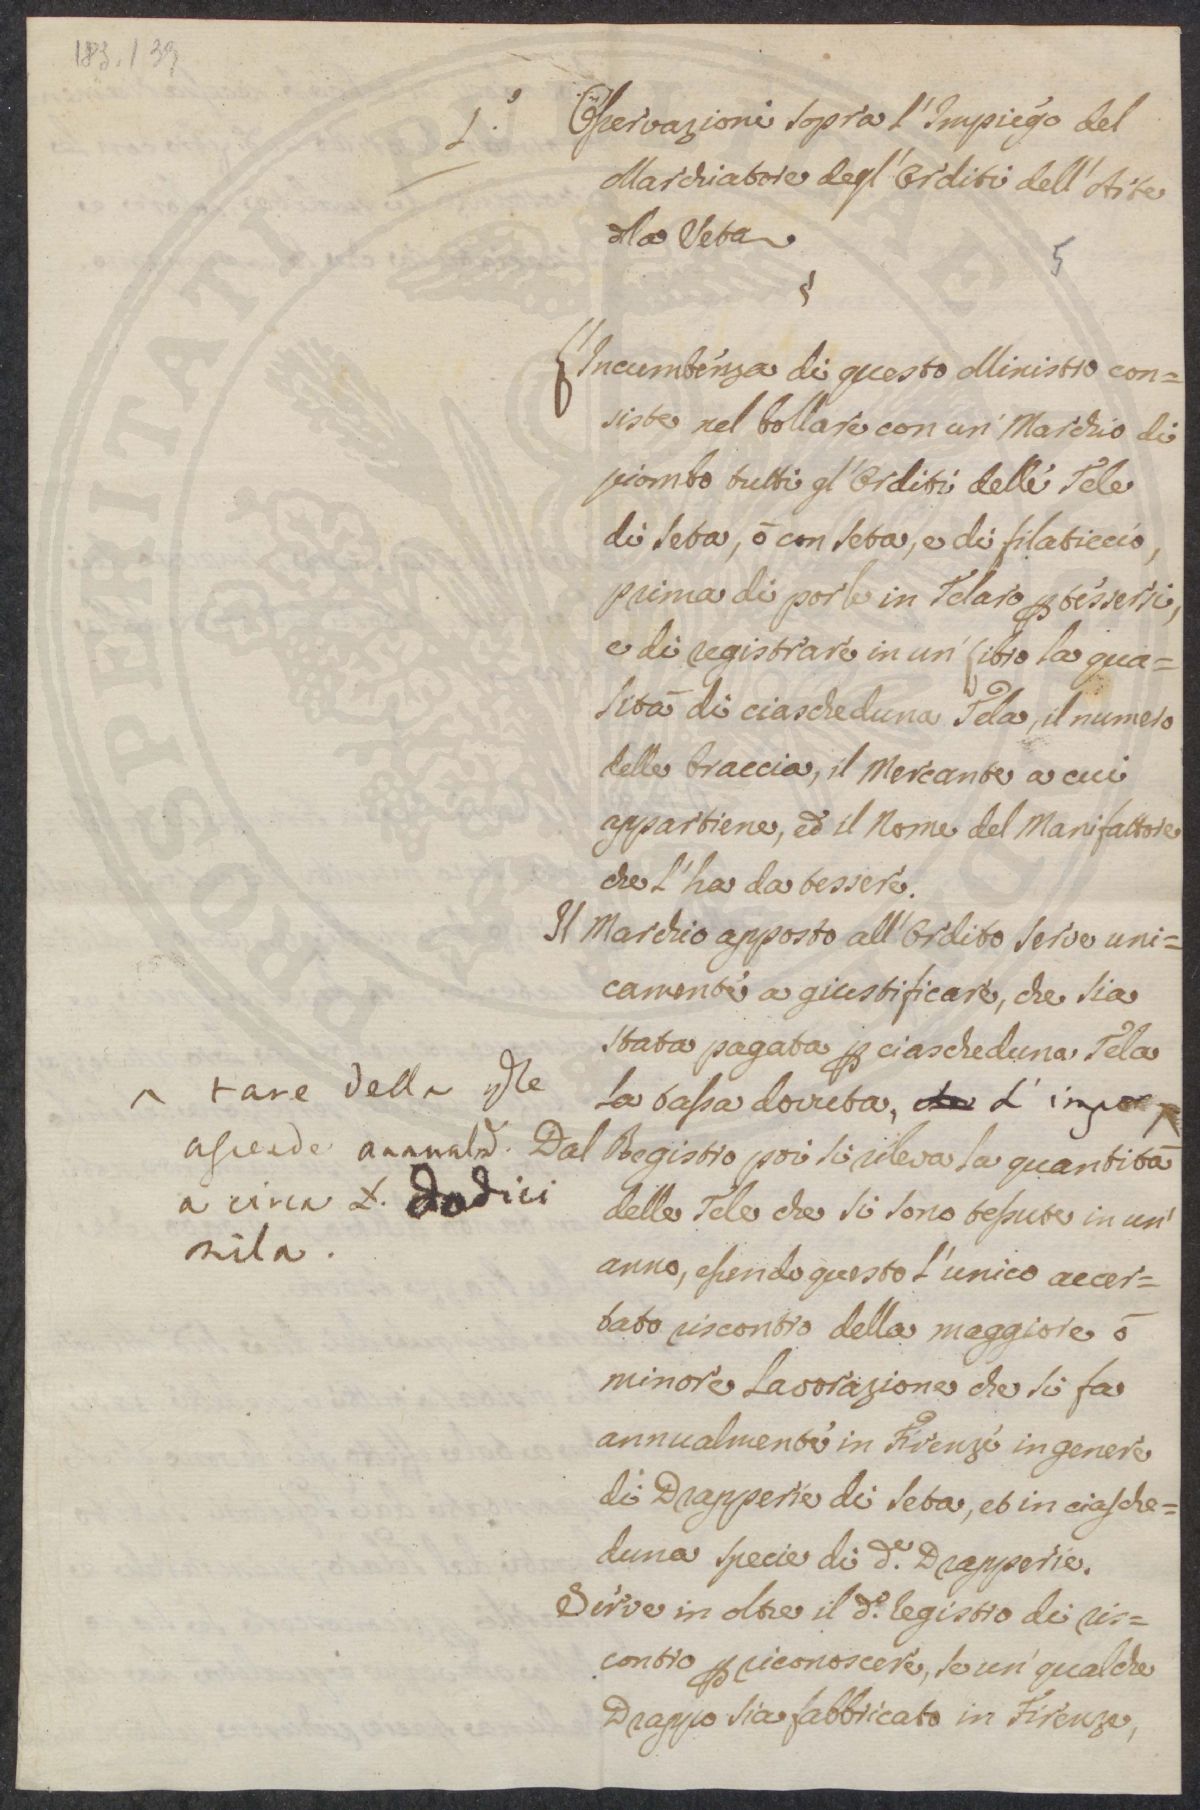 183. / 33
1.°
Osservazioni sopra l'Impiego del
Marchiatore degl'Orditi dell'Arte
dla Seta
5
L'Incumbenza di questo Ministro con=
siste nel bollare con un' Marchio di
piombo tutti gl'Orditi delle Tele
di Seta, ò con Seta, e di filaticcio,
prima di porle in Telaro p tessersi,
e di registrare in un' Libro la qua=
lità di ciascheduna Tela, il numero
delle braccia, il Mercante a cui
appartiene, ed il Nome del Manifattore
che l'ha da tessere.
Il Marchio apposto all'Ordito serve uni=
camente a giustificare, che sia
stata pagata p ciascheduna Tela
la tassa dovuta, che L' impor ^
^ tare della qle
ascende annualm. 
a circa £. Dodici
mila.
Dal Registro poi si rileva la quantità
delle Tele che si sono tessute in un'
anno, essendo questo l'unico accer=
tato riscontro della maggiore ò
minore Lavorazione che si fa
annualmente in Firenze in genere
di Drapperie di Seta, et in ciasche=
duna specie di d.e Drapperie.
Serve in oltre il d.o registro di ris=
contro p riconoscere, se un' qualche
Drappo sia fabbricato in Firenze,
PROSPERITATI PUBLICAE